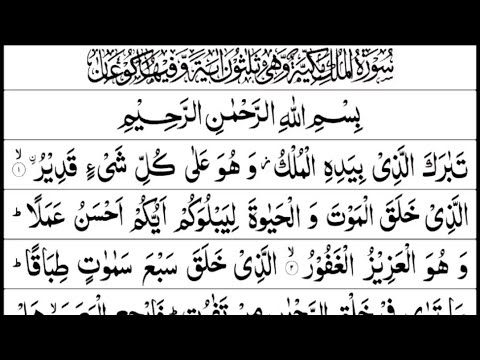 سُوْرَةُ الْمُلْكِ مَكِّيَّةٌ وَّهِيَ ثَلٰثُوْنَ اٰيَةً وَّفِيْهَا رُكُوْعَانِ
بِسْمِ اللهِ الرَّحْمٰنِ الرَّحِيْمِ
تَبٰرَكَ الَّذِىْ بِيَدِهِ الْمُلْكُ ز وَ هُوَ عَلٰى كُلِّ شَىْءٍ قَدِيْرُ ۙ ۱
الَّذِىْ خَلَقَ الْمَوْتَ وَ الْحَيٰوةَ لِيَبْلُوَكُمْ اَيُّكُمْ اَحْسَنُ عَمَلًا ؕ
وَ هُوَ الْعَزِيْزُ الْغَفُوْرُ ۙ ۲ الَّذِىْ خَلَقَ سَبْعَ سَمٰوٰتٍ طِبَاقًا ؕ
مَا تَرٰى فِىْ خَلْقِ الرَّحْمٰنِ مِنْ تَفٰوُتٍ ؕ فَارْجِعِ الْبَصَرَ ۙ هَلْ